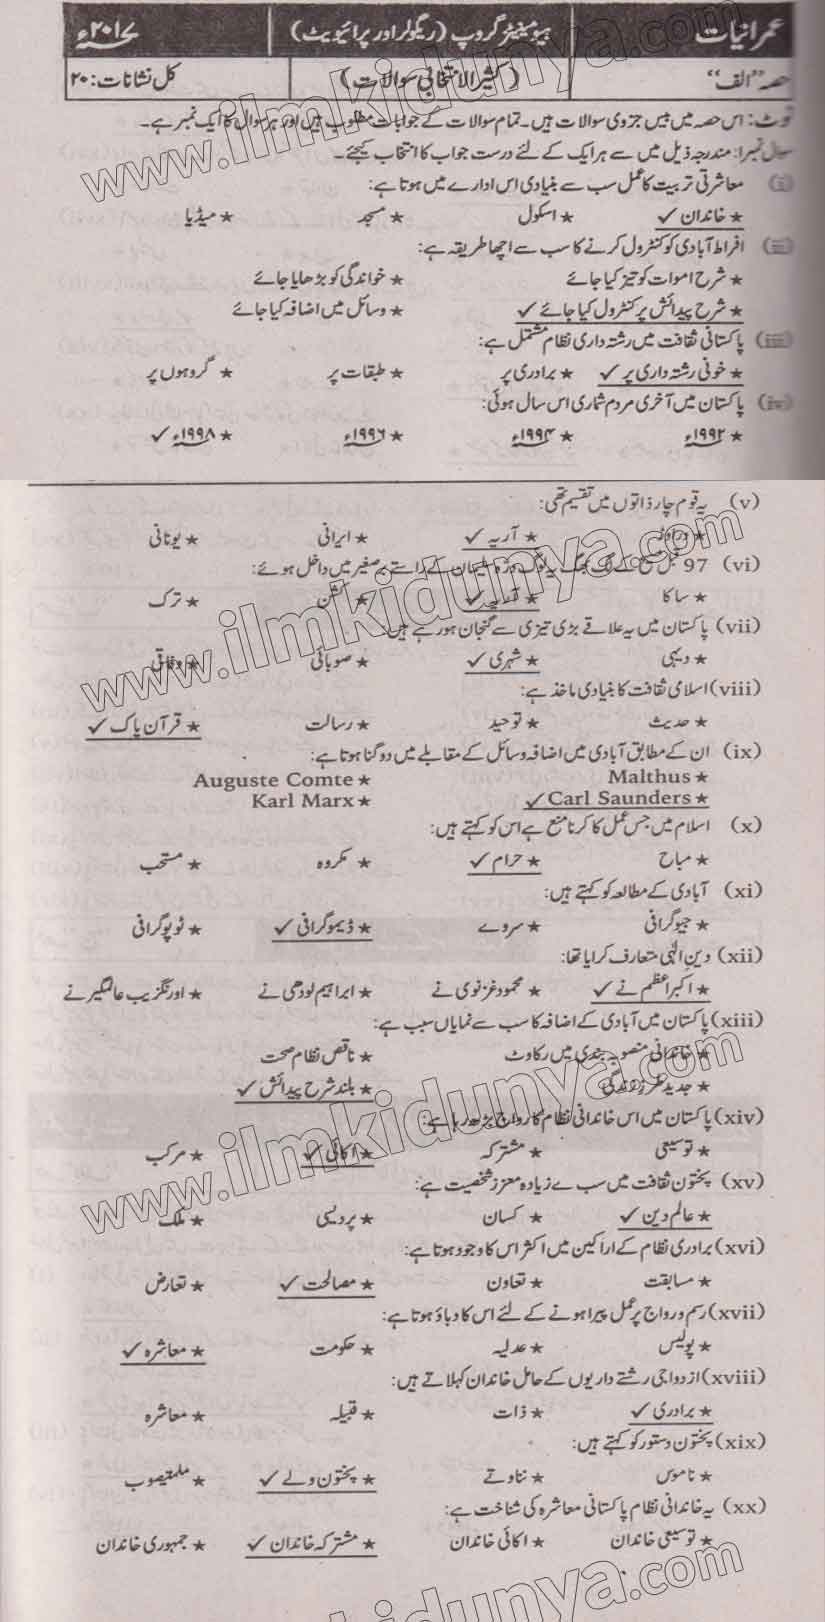 عمرانیات ہیومینیٹیز گروپ (ریگولر اور پرائیویٹ) ۲۰۱۷ء
حصہ "الف" (کثیر الانتخابی سوالات) کل نشانات: ۲۰
نوٹ: اس حصہ میں بیس جزوی سوالات ہیں۔ تمام سوالات کے جوابات مطلوب ہیں اور ہر سوال کا ایک نمبر ہے۔
سوال نمبر۱: مندرجہ ذیل میں سے ہر ایک کے لئے درست جواب کا انتخاب کیجئے۔
(i) معاشرتی تربیت کا عمل سب سے بنیادی اس ادارے میں ہوتا ہے:
★ خاندان ✓ ★ اسکول ★ مسجد ★ میڈیا
(ii) افراط آبادی کو کنٹرول کرنے کا سب سے اچھا طریقہ ہے:
★ شرح اموات کو تیز کیا جائے ★ خواندگی کو بڑھایا جائے
★ شرح پیدائش پر کنٹرول کیا جائے ✓ ★ وسائل میں اضافہ کیا جائے
(iii) پاکستانی ثقافت میں رشتہ داری نظام مشتمل ہے:
★ خونی رشتہ داری پر ✓ ★ برادری پر ★ طبقات پر ★ گروہوں پر
(iv) پاکستان میں آخری مردم شماری اس سال ہوئی:
★ ۱۹۹۲ء ★ ۱۹۹۴ء ★ ۱۹۹۶ء ★ ۱۹۹۸ء ✓
(v) یہ قوم چار ذاتوں میں تقسیم تھی:
★ دراوڑ ★ آریہ ✓ ★ ایرانی ★ یونانی
(vi) 97 قبل مسیح کے لگ بھگ یہ لوگ درہ سلیمان کے راستے برصغیر میں داخل ہوئے:
★ ساکا ★ آریہ ✓ ★ کشن ★ ترک
(vii) پاکستان میں یہ علاقے بڑی تیزی سے گنجان ہو رہے ہیں:
★ دیہی ★ شہری ✓ ★ صوبائی ★ وفاقی
(viii) اسلامی ثقافت کا بنیادی ماخذ ہے:
★ حدیث ★ توحید ★ رسالت ★ قرآن پاک ✓
(ix) ان کے مطابق آبادی میں اضافہ وسائل کے مقابلے میں دوگنا ہوتا ہے:
★ Malthus ★ Auguste Comte
★ Carl Saunders ✓ ★ Karl Marx
(x) اسلام میں جس عمل کا کرنا منع ہے اس کو کہتے ہیں:
★ مباح ★ حرام ✓ ★ مکروہ ★ مستحب
(xi) آبادی کے مطالعہ کو کہتے ہیں:
★ جیوگرافی ★ سروے ★ ڈیموگرافی ✓ ★ ٹوپوگرافی
(xii) دین الٰہی متعارف کرایا تھا:
★ اکبر اعظم نے ✓ ★ محمود غزنوی نے ★ ابراہیم لودھی نے ★ اورنگزیب عالمگیر نے
(xiii) پاکستان میں آبادی کے اضافہ کا سب سے نمایاں سبب ہے:
★ خاندانی منصوبہ بندی میں رکاوٹ ★ ناقص نظام صحت
★ جدید طرز زندگی ★ بلند شرح پیدائش ✓
(xiv) پاکستان میں اس خاندانی نظام کا رواج بڑھ رہا ہے:
★ توسیعی ★ مشترکہ ★ اکائی ✓ ★ مرکب
(xv) پختون ثقافت میں سب سے زیادہ معزز شخصیت ہے:
★ عالم دین ✓ ★ کسان ★ پردیسی ★ ملک
(xvi) برادری نظام کے اراکین میں اکثر اس کا وجود ہوتا ہے:
★ مسابقت ★ تعاون ★ مصالحت ✓ ★ تعارض
(xvii) رسم و رواج پر عمل پیرا ہونے کے لئے اس کا دباؤ ہوتا ہے:
★ پولیس ★ عدلیہ ★ حکومت ★ معاشرہ ✓
(xviii) ازدواجی رشتے داریوں کے حامل خاندان کہلاتے ہیں:
★ برادری ✓ ★ ذات ★ قبیلہ ★ معاشرہ
(xix) پختون دستور کو کہتے ہیں:
★ ناموس ★ نناوتے ★ پختون ولے ✓
(xx) یہ خاندانی نظام پاکستانی معاشرہ کی شناخت ہے:
★ توسیعی خاندان ★ اکائی خاندان ★ مشترکہ خاندان ✓ ★ جمہوری خاندان
www.ilmkidunya.com
www.ilmkidunya.com
www.ilmkidunya.com
www.ilmkidunya.com